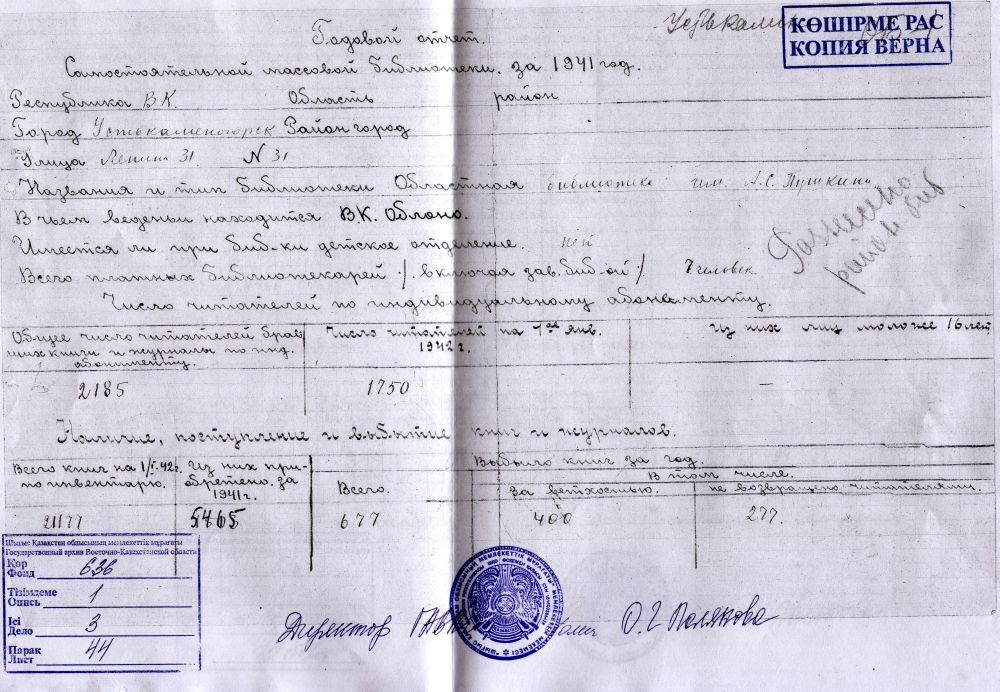 Устькамен
КӨШІРМЕ РАС
КОПИЯ ВЕРНА
Годовой отчет.
Самостоятельной массовой библиотеки. за 1941 год.
Республика В.К. Область район
Город Устькаменогорск Район город
Улица Ленина 31. N 31
Названия и тип библиотеки Областная библиотека им. А.С. Пушкина
В чьем веденьи находится В.К. Облоно.
Имеется ли при биб-ки детское отделение. нет
Всего платных библиотекарей /. включая зав. биб-ой ./ 7 человек
район. биб
Число читателей по индивидуальному абонименту.
Общее число читателей брав- Число читателей на 1ое янв. Из них лиц моложе 16 лет
ших книги и журналы по инд. 1942 г.
абонименту.
2185 1750 —
Наличие, поступление и выбытие книг и журналов.
Всего книг на 1/I-42 г. Из них при- Выбыло книг за год.
по инвентарю. обретено. за В том числе.
1941 г. Всего. За ветхостью. не возвращено читателями.
21177 5465 677 400 277.
Шығыс Қазақстан облысының мемлекеттік мұрағаты
Государственный архив Восточно-Казахстанской области
Қор
Фонд 636
Тізімдеме
Опись 1
Ісі
Дело 3
Парақ
Лист 44
Директор ГАВК О.Г Полякова